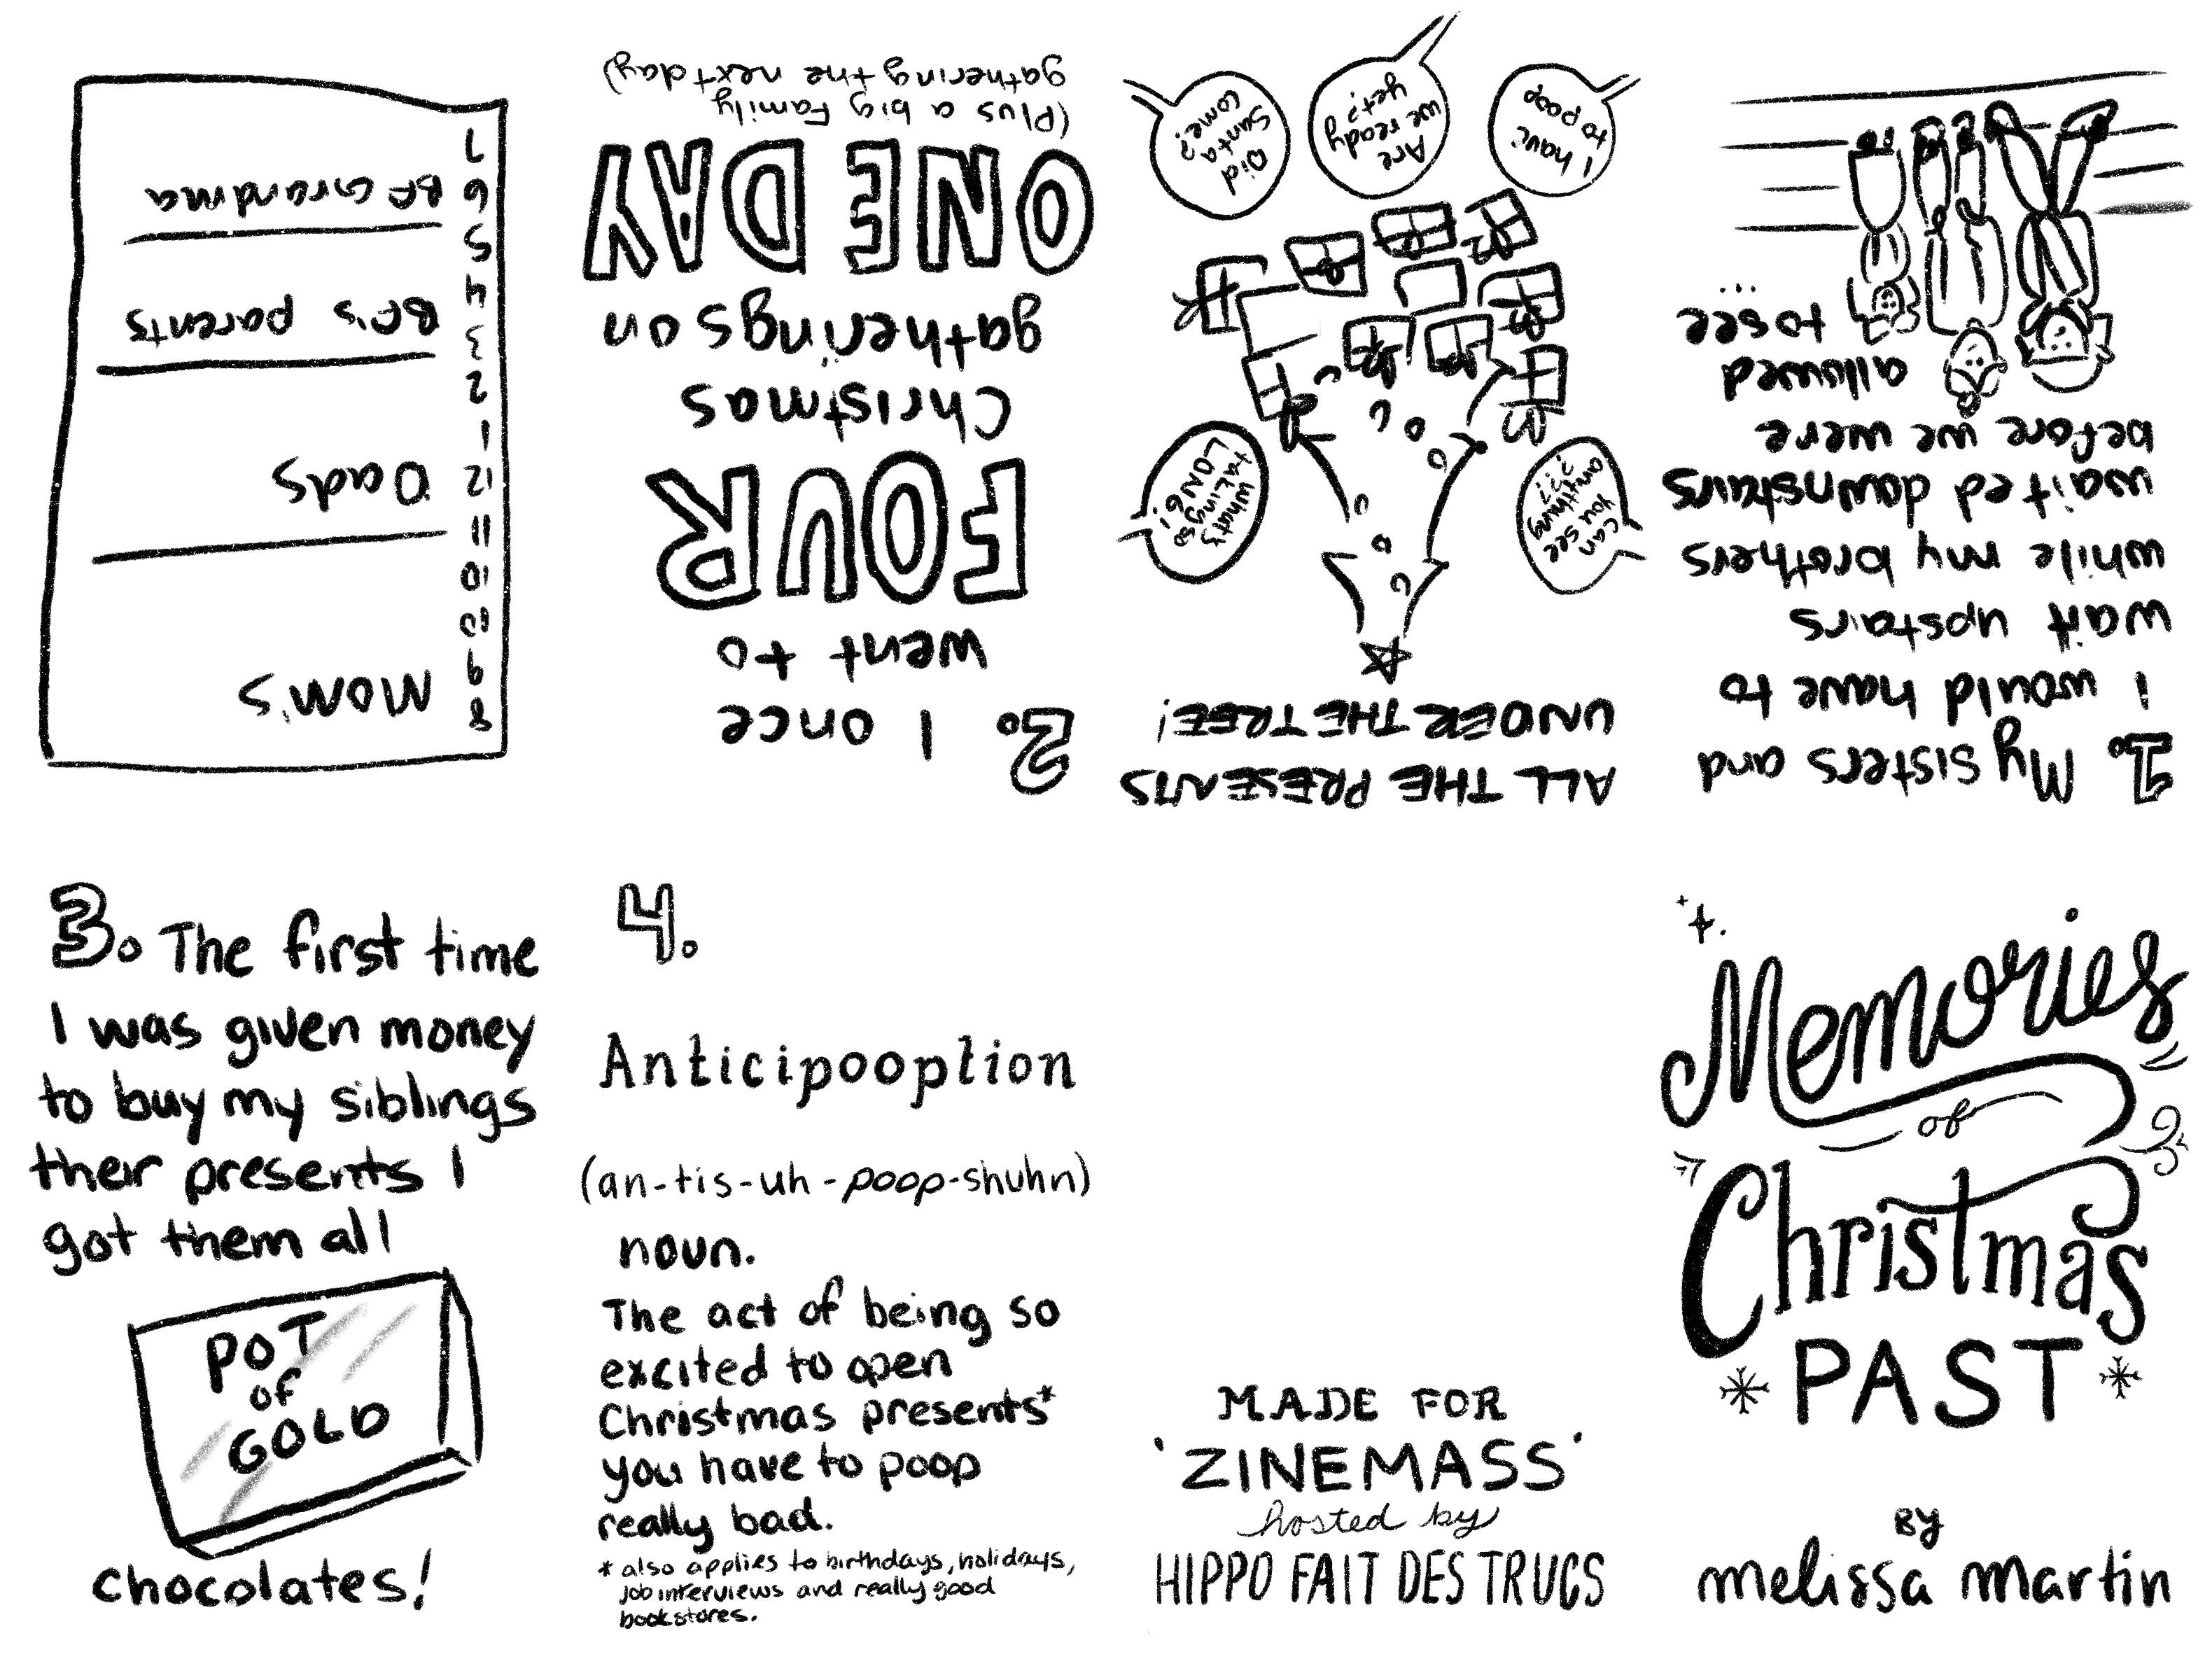 Memories
of
Christmas
PAST
BY
melissa martin
1. My sisters and
I would have to
wait upstairs
while my brothers
waited downstairs
before we were
allowed
to see
...
ALL THE PRESENTS
UNDER THE TREE!
What's
taking so
LONG!
Can
you see
anything
???
Did
Santa
come?
Are
we ready
yet?
I have
to poop
2. I once
went to
FOUR
Christmas
gatherings on
ONE DAY
(Plus a big family
gathering the next day)
8
9
10
10
11
12
1
2
3
4
5
6
7
MOM'S
Dad's
BF's parents
BF Grandma
3. The first time
I was given money
to buy my siblings
their presents I
got them all
POT
of
GOLD
chocolates!
4.
Anticipooption
(an-tis-uh-poop-shuhn)
noun.
The act of being so
excited to open
Christmas presents*
you have to poop
really bad.
* also applies to birthdays, holidays,
job interviews and really good
bookstores.
MADE FOR
'ZINEMASS'
hosted by
HIPPO FAIT DES TRUCS